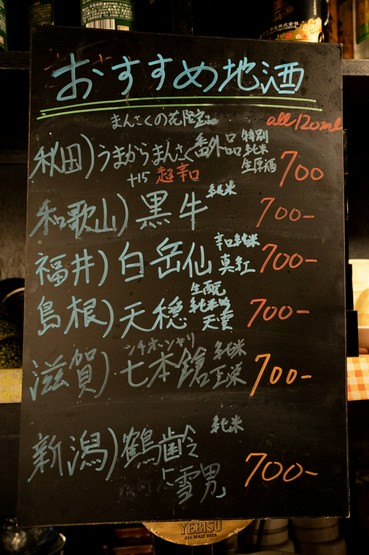 おすすめ地酒
all 120ml
まんさくの花限定
秋田)うまからまんさく 番外品 特別純米生原酒 700
+15 超辛口
和歌山)黒牛 純米 700-
福井)白岳仙 辛口純米 真紅 700-
島根)天穏 生酛 純米吟 天雲 700-
滋賀)七本鎗 純米 玉米 700-
シチホンヤリ
新潟)鶴齢 純米
雪男 700-
YEBISU
ALL MALT BEER